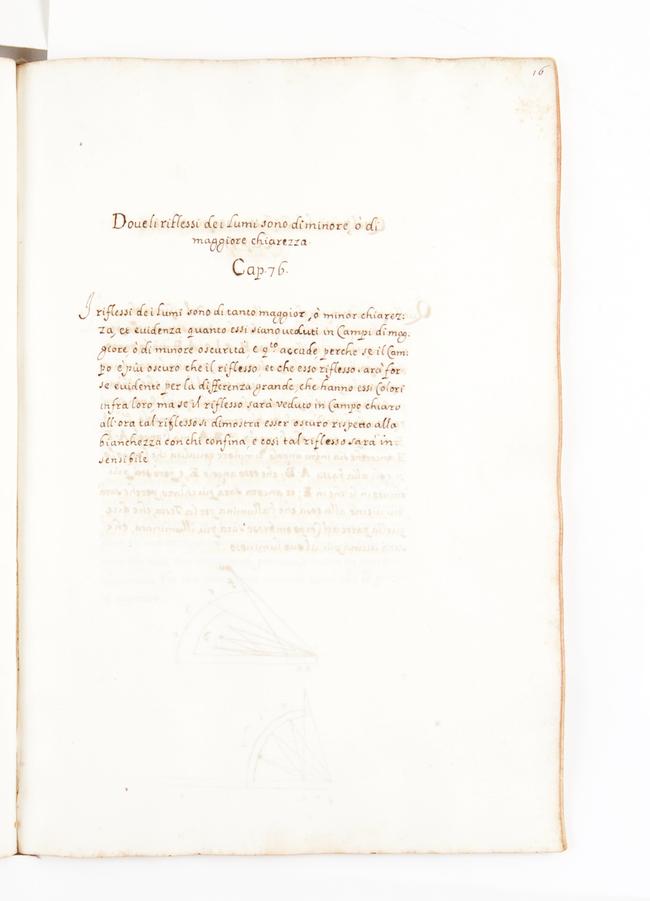 16
Doue li riflessi de i Lumi sono di minore, ò di
maggiore chiarezza.
Cap. 76.
I riflessi de i lumi sono di tanto maggior, ò minor chiarez:
za, et euidenza quanto essi siano ueduti in Campi di mag:
giore ò di minore oscurità e q.to accade, perche se il Cam:
po è più oscuro che il riflesso, et che esso riflesso sarà for
se euidente per la differenza grande, che hanno essi Colori
infra loro, ma se il riflesso sarà ueduto in Campo chiaro
all'ora tal riflesso si dimostrà esser oscuro rispetto alla
bianchezza con chi confina, e così tal riflesso sarà in:
sensibile